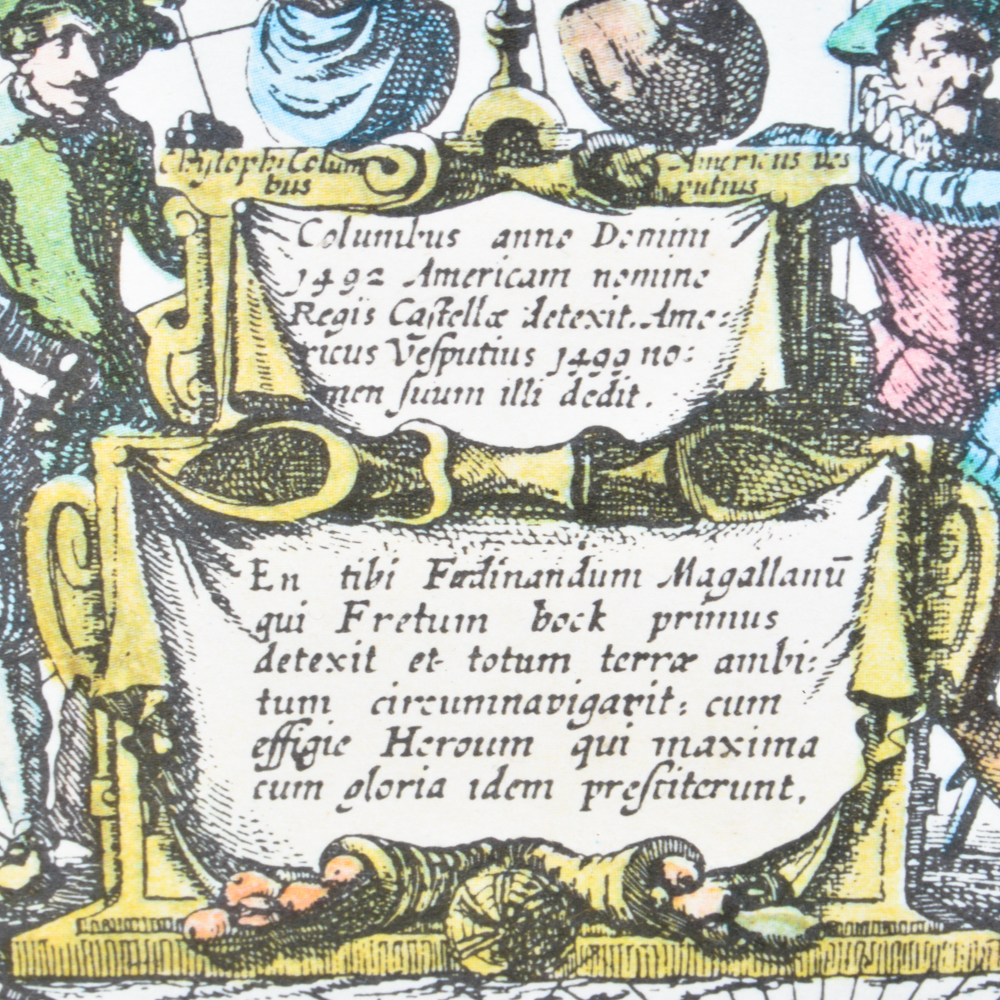 Chrystophi Colum
bus
Americus Ves
putius
Columbus anno Domini
1492 Americam nomine
Regis Castellæ detexit. Ame:
ricus Vesputius 1499 no:
men suum illi dedit.
En tibi Ferdinandum Magallanū
qui Fretum hock primus
detexit et totum terræ ambi:
tum circumnavigavit: cum
effigie Heroum qui maxima
cum gloria idem prestiterunt.